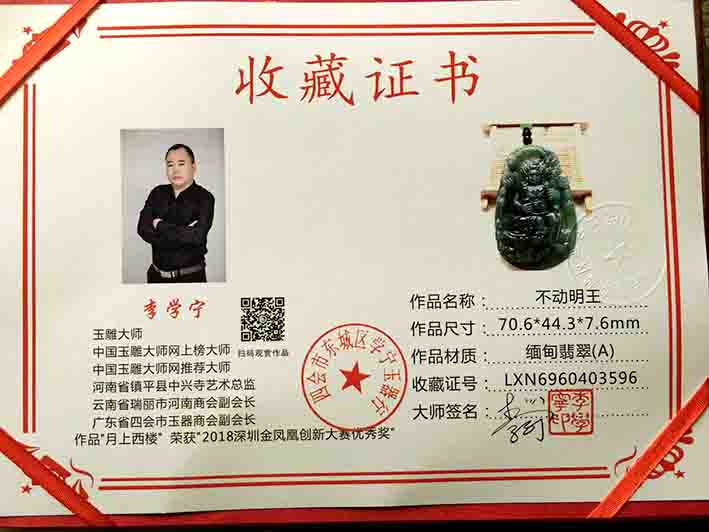 收藏证书
李学宁
扫码观赏作品
玉雕大师
中国玉雕大师网上榜大师
中国玉雕大师网推荐大师
河南省镇平县中兴寺艺术总监
云南省瑞丽市河南商会副会长
广东省四会市玉器商会副会长
作品"月上西楼" 荣获"2018深圳金凤凰创新大赛优秀奖"
四会市东城区学宁玉器行
作品名称：不动明王
作品尺寸：70.6*44.3*7.6mm
作品材质：缅甸翡翠(A)
收藏证号：LXN6960403596
大师签名：
李學寧印